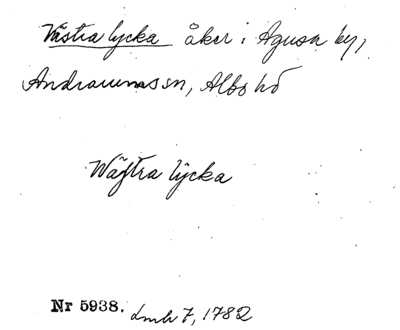 Västra lycka åker i Agusa by,
Andrarums sn, Albo hd
Wästra lÿcka
Nr 5938. Lmh 7, 1782